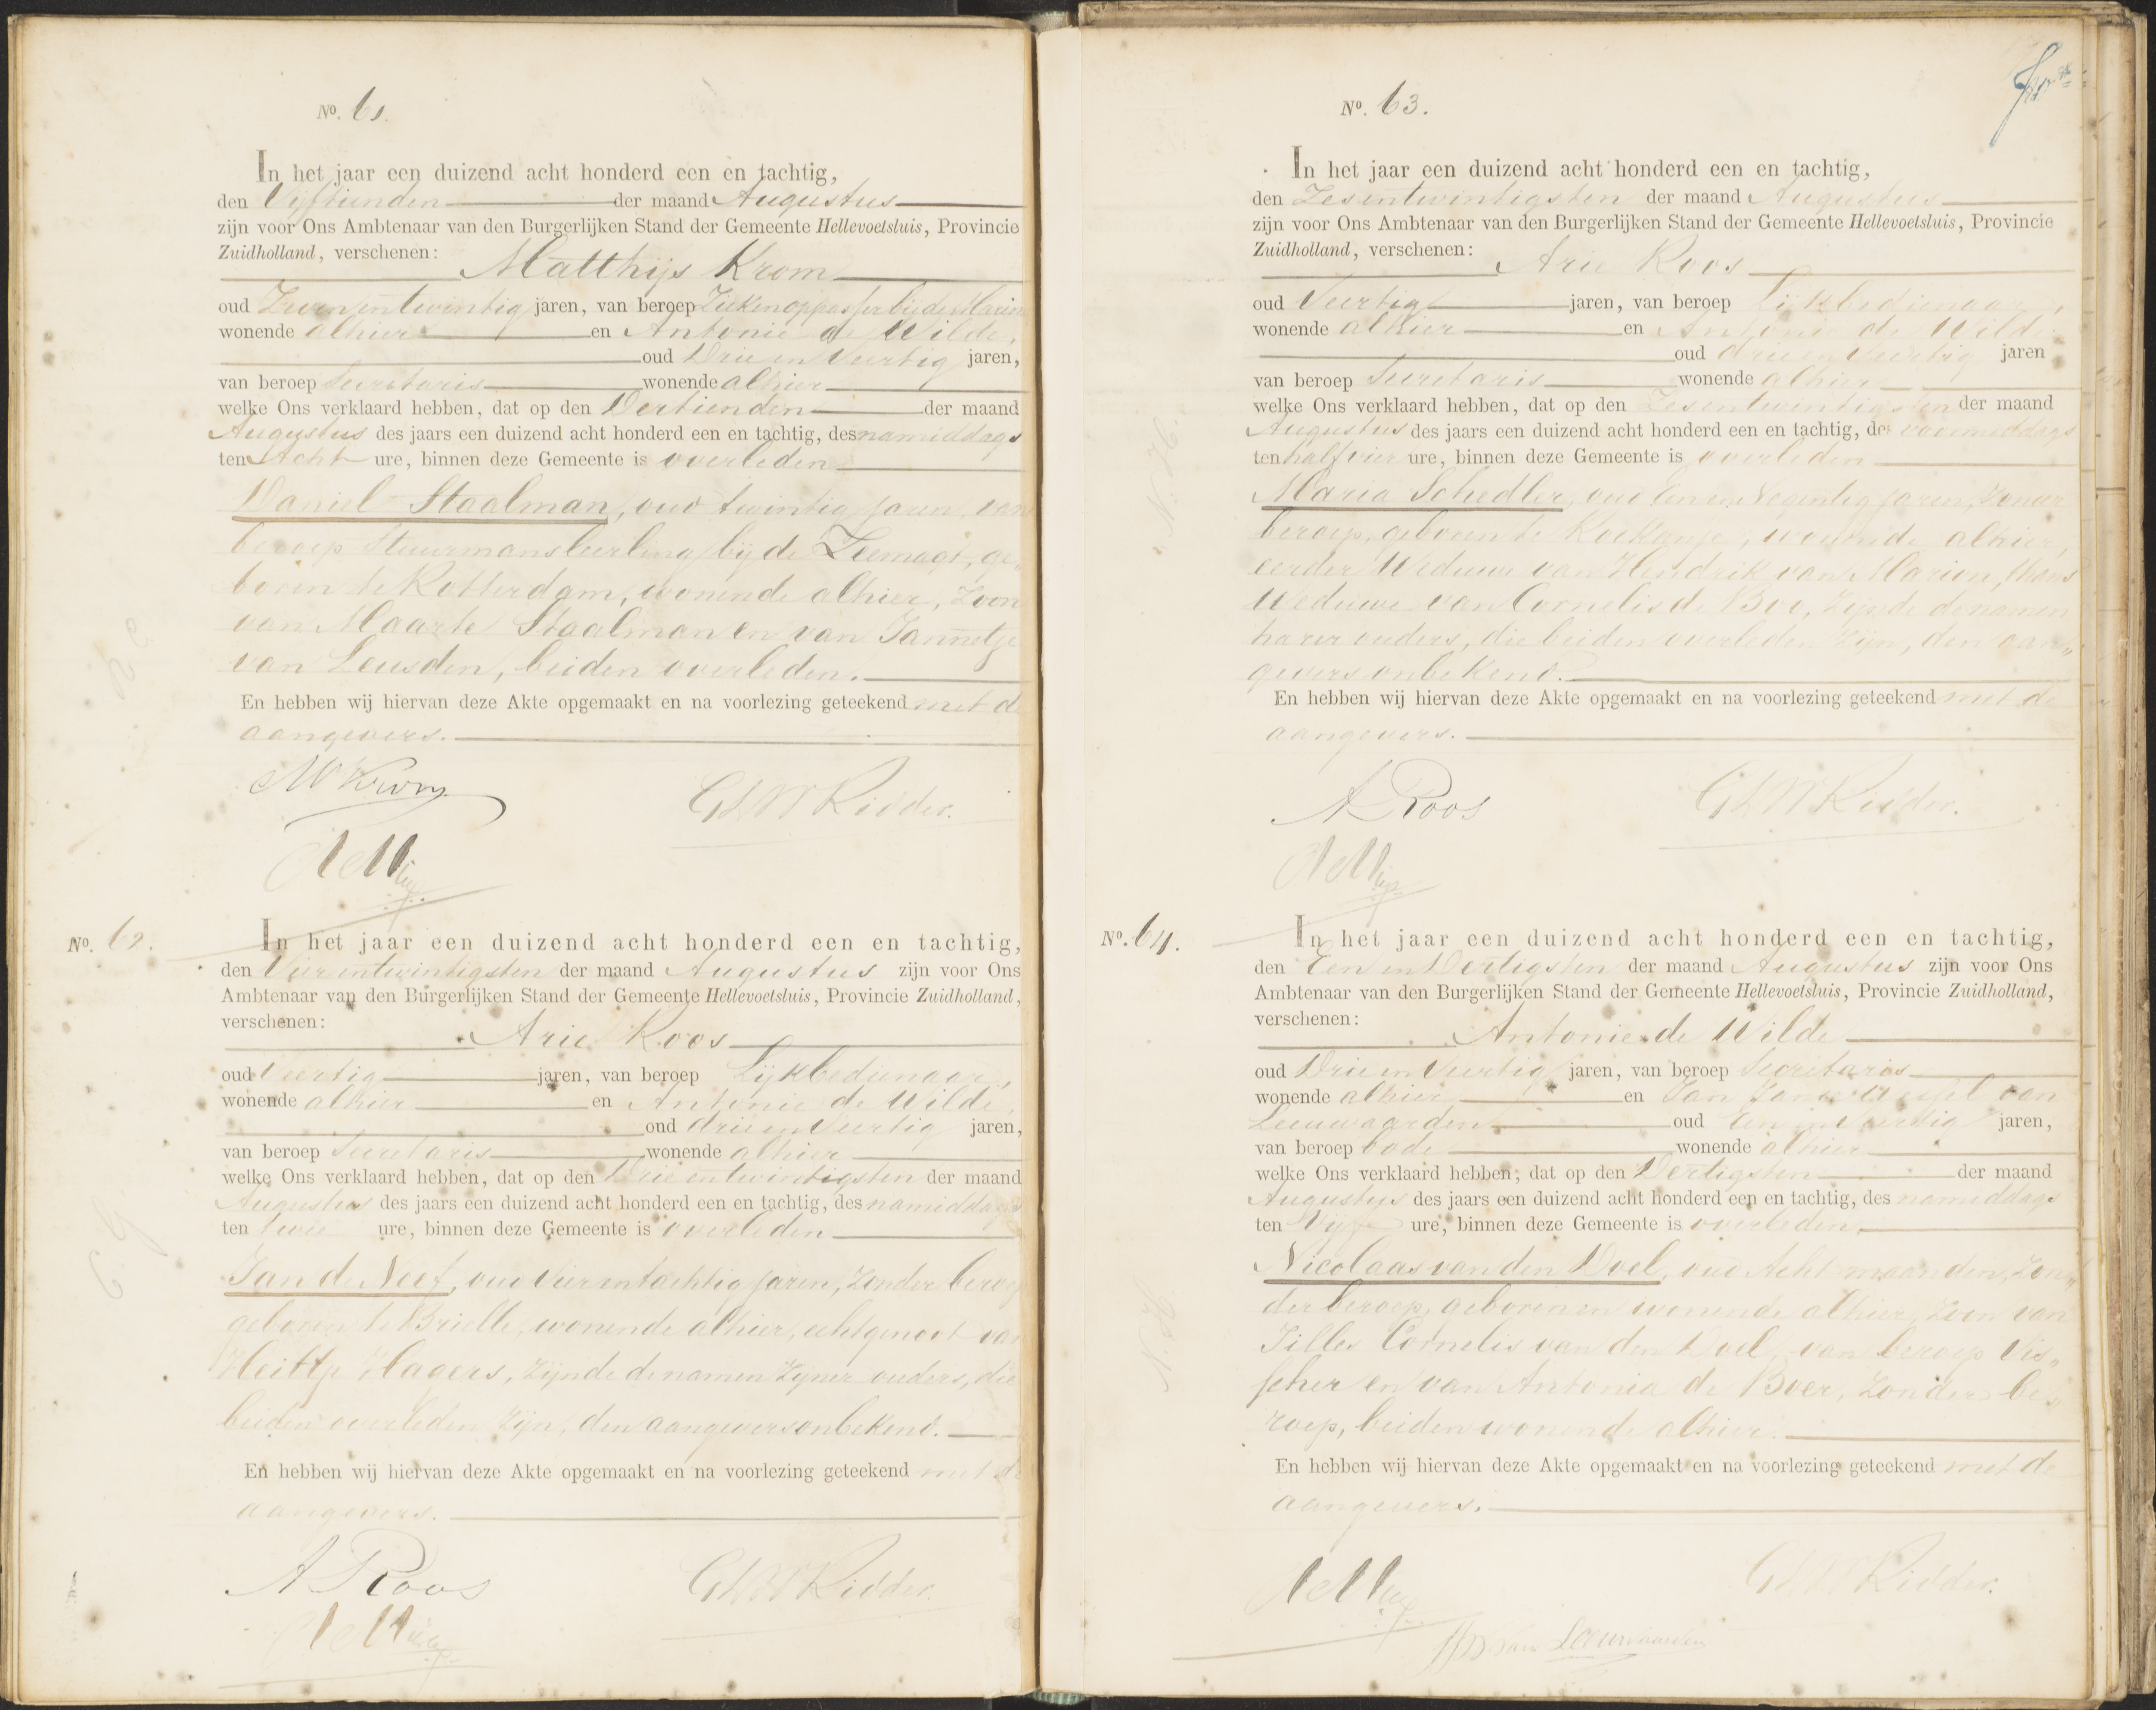 No. 61.
In het jaar een duizend acht honderd een en tachtig,
den Vijftienden der maand Augustus
zijn voor Ons Ambtenaar van den Burgerlijken Stand der Gemeente Hellevoetsluis, Provincie
Zuidholland, verschenen:
Matthijs Krom
oud Zevenentwintig jaren, van beroep Ziekenoppasser bij de Marine
wonende alhier en Antonie de Wilde,
oud Drie en Veertig jaren,
van beroep Secretaris wonende alhier
welke Ons verklaard hebben, dat op den Dertienden der maand
Augustus des jaars een duizend acht honderd een en tachtig, des namiddags
ten Acht ure, binnen deze Gemeente is overleden
Daniel Staalman, oud twintig jaren van
beroep Stuurmansleerling bij de Zeemagt, ge„
boren te Rotterdam, wonende alhier, Zoon
van Maarte Staalman en van Jannetje
van Leusden, beiden overleden.
En hebben wij hiervan deze Akte opgemaakt en na voorlezing geteekend met de
aangevers.
M Krom
GLW Ridder.
No. 62.
In het jaar een duizend acht honderd een en tachtig,
den Vierentwintigsten der maand Augustus zijn voor Ons
Ambtenaar van den Burgerlijken Stand der Gemeente Hellevoetsluis, Provincie Zuidholland,
verschenen:
Arie Roos
oud Veertig jaren, van beroep Lijkbedienaar,
wonende alhier en Antonie de Wilde,
oud drie en Veertig jaren,
van beroep Secretaris wonende alhier
welke Ons verklaard hebben, dat op den Drie entwintigsten der maand
Augustus des jaars een duizend acht honderd een en tachtig, des namiddags
ten twee ure, binnen deze Gemeente is overleden
Jan de Neef, oud Vierentachtig jaren, Zonder beroep
geboren te Brielle, wonende alhier, echtgenoot van
Heiltje Hagers, zijnde de namen zijner ouders, die
beiden overleden zijn, den aangevers onbekend.
En hebben wij hiervan deze Akte opgemaakt en na voorlezing geteekend met de
aangevers.
A Roos
GLW Ridder.
No. 63.
In het jaar een duizend acht honderd een en tachtig,
den Zesentwintigsten der maand Augustus
zijn voor Ons Ambtenaar van den Burgerlijken Stand der Gemeente Hellevoetsluis, Provincie
Zuidholland, verschenen:
Arie Roos
oud Veertig jaren, van beroep Lijkbedienaar,
wonende alhier en Antonie de Wilde
oud drie en Veertig jaren
van beroep Secretaris wonende alhier
welke Ons verklaard hebben, dat op den Zesentwintigsten der maand
Augustus des jaars een duizend acht honderd een en tachtig, des voormiddags
ten half vier ure, binnen deze Gemeente is overleden
Maria Schedler, oud Eenen Negentig jaren, Zonder
beroep, geboren te Rockanje, wonende alhier,
eerder Weduwe van Hendrik van Marion, thans
Weduwe van Cornelis de Boo, zijnde de namen
harer ouders, die beiden overleden zijn, den aan„
gevers onbekend.
En hebben wij hiervan deze Akte opgemaakt en na voorlezing geteekend met de
aangevers.
A Roos
GLW Ridder.
N. H.
No. 64.
In het jaar een duizend acht honderd een en tachtig,
den Een en Dertigsten der maand Augustus zijn voor Ons
Ambtenaar van den Burgerlijken Stand der Gemeente Hellevoetsluis, Provincie Zuidholland,
verschenen:
Antonie de Wilde
oud Drie en Veertig jaren, van beroep Secretaris
wonende alhier en Jan van
Leeuwaarden oud Een en Veertig jaren,
van beroep bode wonende alhier
welke Ons verklaard hebben, dat op den Dertigsten der maand
Augustus des jaars een duizend acht honderd een en tachtig, des namiddags
ten Vijf ure, binnen deze Gemeente is overleden,
Nicolaas van den Doel, oud Acht maanden, Zon„
der beroep, geboren en wonende alhier, Zoon van
Jilles Cornelis van den Doel, van beroep Vis„
scher en van Antonia de Boer, Zonder be„
roep, beiden wonende alhier.
En hebben wij hiervan deze Akte opgemaakt en na voorlezing geteekend met de
aangevers.
GLW Ridder.
van Leeuwaarden
N. H.